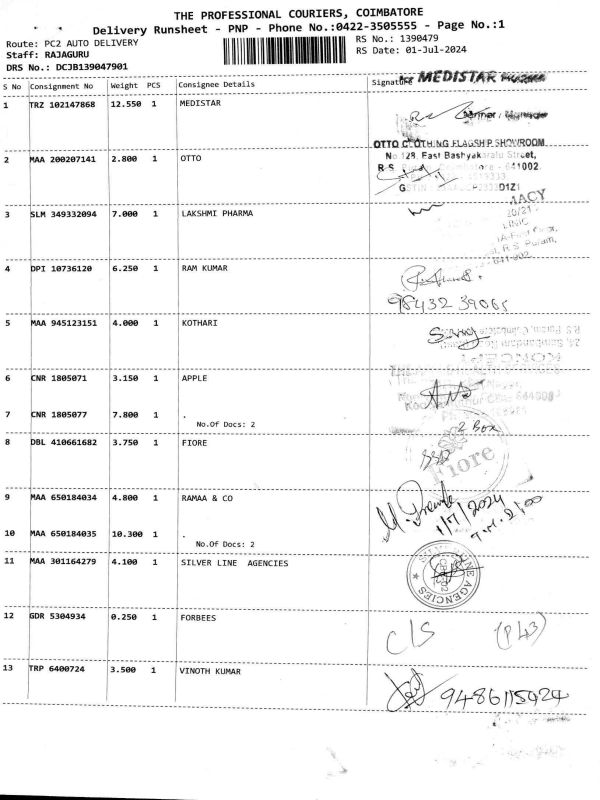 THE PROFESSIONAL COURIERS, COIMBATORE
Delivery Runsheet - PNP - Phone No.:0422-3505555 - Page No.:1
Route: PC2 AUTO DELIVERY RS No.: 1390479
Staff: RAJAGURU RS Date: 01-Jul-2024
DRS No.: DCJB139047901
S No Consignment No Weight PCS Consignee Details Signature
MEDISTAR
1 TRZ 102147868 12.550 1 MEDISTAR
OTTO CLOTHING FLAGSHIP SHOWROOM
No 128, East Bashyakaralu Street,
2 MAA 200207141 2.800 1 OTTO
641002
3 SLM 349332094 7.000 1 LAKSHMI PHARMA
4 DPI 10736120 6.250 1 RAM KUMAR
98432 39065
5 MAA 945123151 4.000 1 KOTHARI
6 CNR 1805071 3.150 1 APPLE
7 CNR 1805077 7.800 1 .
No.Of Docs: 2
2 Box
8 DBL 410661682 3.750 1 FIORE
Fiore
9 MAA 650184034 4.800 1 RAMAA & CO
1/7/2024
10 MAA 650184035 10.300 1 .
No.Of Docs: 2
11 MAA 301164279 4.100 1 SILVER LINE AGENCIES
12 GDR 5304934 0.250 1 FORBEES
C/S (P43)
13 TRP 6400724 3.500 1 VINOTH KUMAR